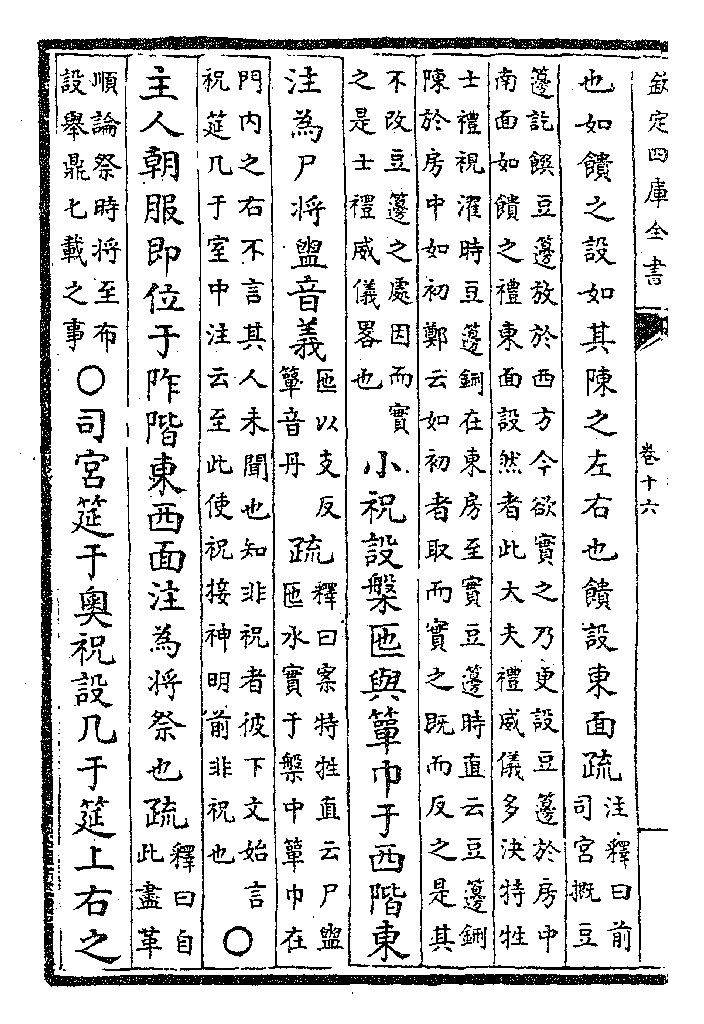 欽定四庫全書
卷十六
也如饋之設如其陳之左右也饋設東面疏
注釋曰前
司宮摡豆
籩訖饌豆籩放於西方今欲實之乃更設豆籩於房中
南面如饋之禮東面設然者此大夫禮威儀多決特牲
士禮視濯時豆籩鉶在東房至實豆籩時直云豆籩鉶
陳於房中如初鄭云如初者取而實之既而反之是其
不改豆籩之處因而實
之是士禮威儀畧也
小祝設槃匜與簞巾于西階東
注為尸将盥音義
匜以支反
簞音丹
疏
釋曰案特牲直云尸盥
匜水實于槃中簞巾在
門内之右不言其人未聞也知非祝者彼下文始言
祝筵几于室中注云至此使祝接神明前非祝也
○
主人朝服即位于阼階東西面注為将祭也疏
釋曰自
此盡革
順論祭時将至布
設舉鼎匕載之事
○司宮筵于奥祝設几于筵上右之